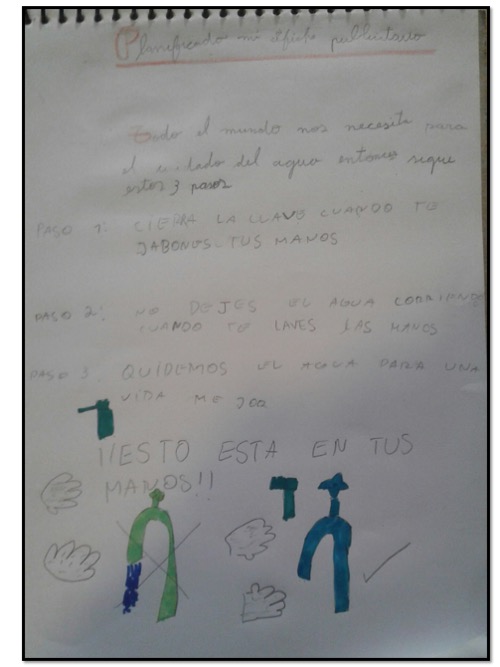 Planificando mi afiche publicitario
Todo el mundo nos necesita para
el cuidado del agua entonces sigue
estos 3 pasos
PASO 1: CIERRA LA LLAVE CUANDO TE
JABONES TUS MANOS
PASO 2: NO DEJES EL AGUA CORRIENDO
CUANDO TE LAVES LAS MANOS
PASO 3. QUIDEMOS EL AGUA PARA UNA
VIDA MEJOR
¡¡ESTO ESTA EN TUS
MANOS!!